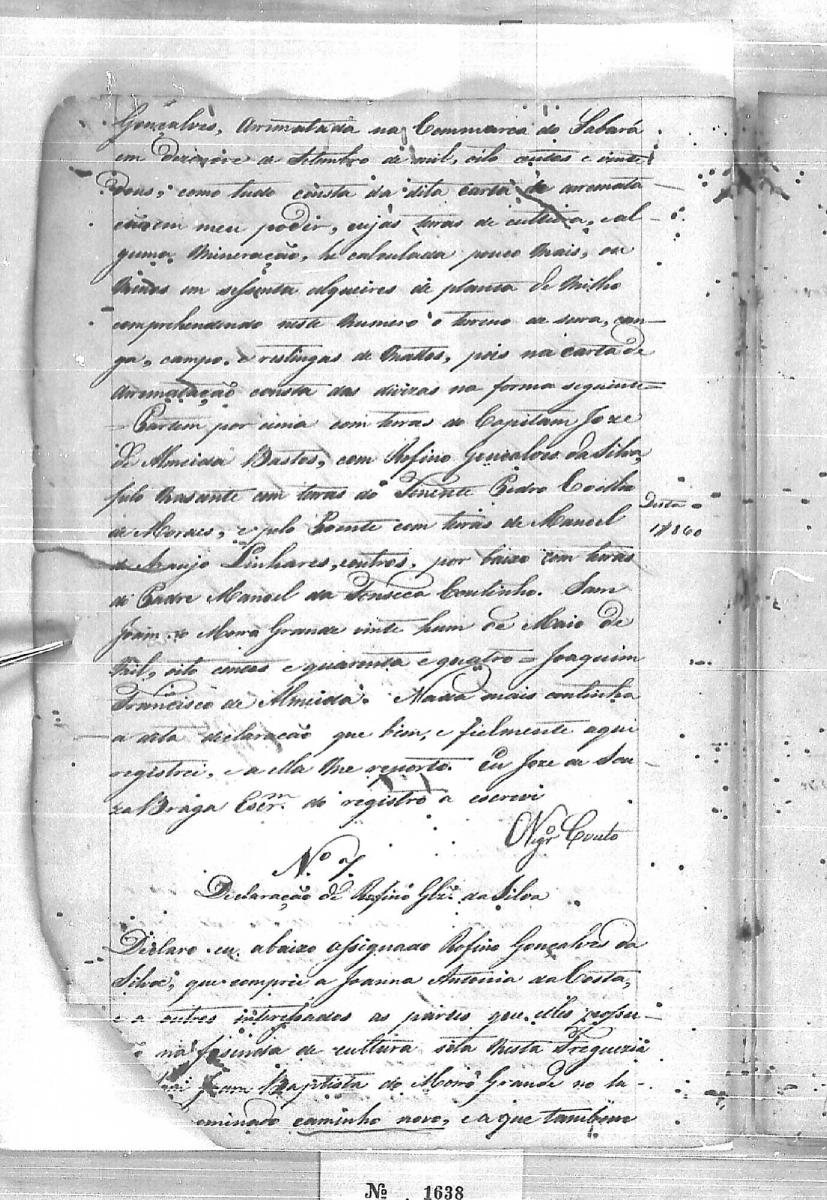 Gonçalves, arrematada na Commarca do Sabará
em dezenove de Setembro de mil, oito centos e vinte
dous; como tudo consta da dita carta de arremata-
ção em meu poder, cujas terras de cultura, e al-
guma Mineração, he calculada pouco mais, ou
menos em sessenta alqueires de planta de Milho
comprehendendo neste Numero o terreno de serra, can-
ga, campo, e restingas de Mattos, pois na carta de
arrematação consta das divizas na forma seguinte=
= Partem por sima com terras do Capitam Joze
de Almeida Bastos, com Rofino Gonçalves da Silva,
pelo Nasente com terras do Tenente Pedro Coelho
de Moraes, e pelo Poente com terras de Manoel
de Araujo Linhares, e outros, por baixo com terras
do Padre Manoel da Fonseca Coutinho. Sam
Joam do Morro Grande vinte hum de Maio de
Mil, oito centos e quarenta e quatro = Joaquim
Francisco de Almeida. Nada mais continha
a dita declaração que bem, e fielmente aqui
registrei, e a ella me reporto. Eu Joze de Sou-
za Braga Escr.m do registro a escrevi
Vigr.o Couto
Desta
1$860
N.o 7
Declaração de Rofino Glz. da Silva
Declaro eu abaixo assignado Rofino Gonçalves da
Silva, que comprei a Joanna Antonia da Costa,
e a outros interessados as partes que elles possu-
na fazenda de cultura sita Nesta Freguezia
Joam Baptista do Morro Grande no lu-
ominado caminho novo, e a que tambem
No 1638